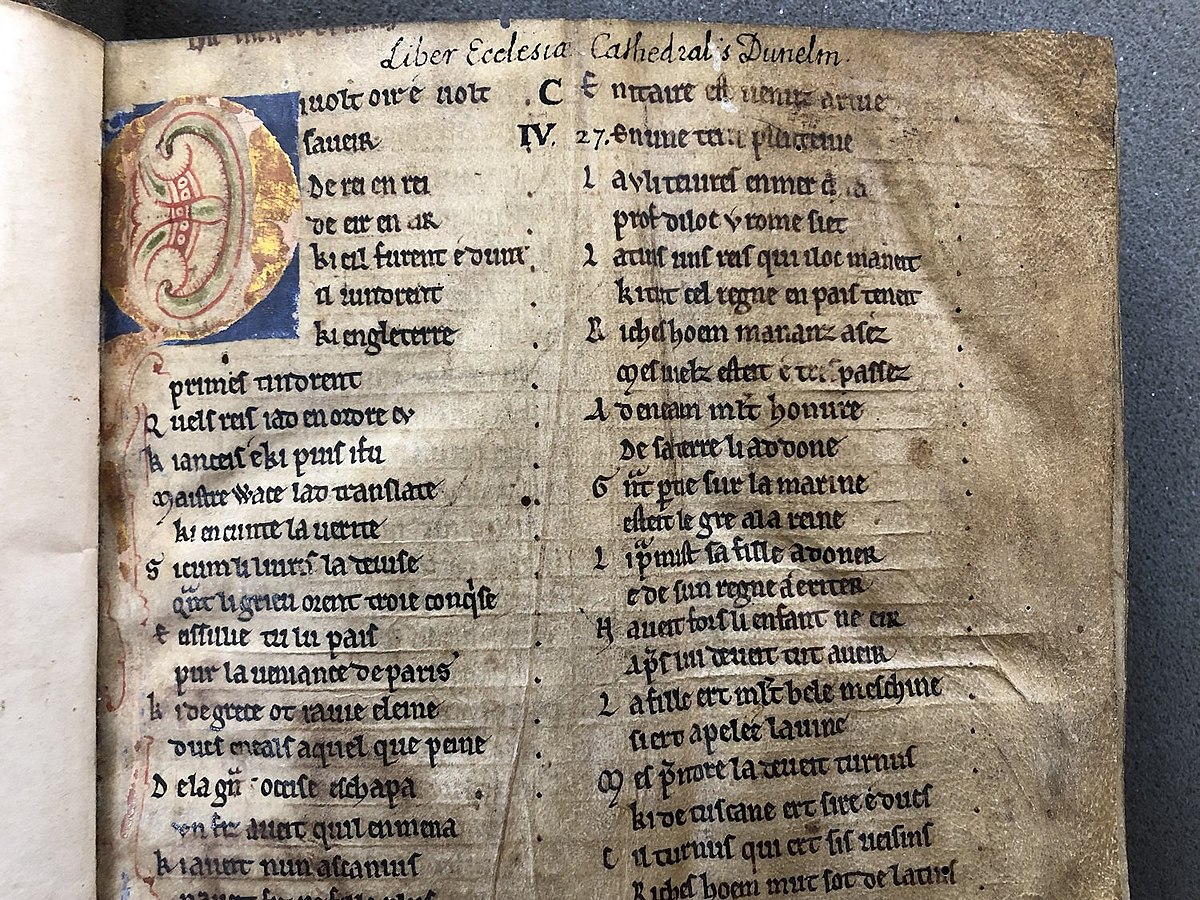 Liber Ecclesiæ Cathedralis Dunelm.
C
IV. 27.
i volt oir e volt
saveir
De rei en rei
de eir en eir
ki cil furent e dunt
il vindrent
ki engleterre
primes tindrent
Quels reis i ad en ordre eu
ki anceis e ki puis i fu
Maistre Wace lad translate
ki en cunte la verite
Si cum li livres la devise
qnt li grieu orent troie conqise
E eissillie tu lu pais
pur la veniance de paris
ki de grece ot ravie eleine
ducs eneals a quel que peine
De la gnt occise eschapa
un fiz aveit quil en mena
Ki aveit nun ascanius
En itaire est venuz
En une terre
prof diloc u rome siet
Latins uns reis qui iloc maneit
ki tut cel regne en pais teneit
Riches hoem mananz asez
Mes vielz esteit e passez
Ad eneam mlt honure
De sa terre li ad done
Gnt ptie sur la marine
esteit le gre a la reine
Li pmist sa fille a doner
e de sun regne a eriter
N aveit fors li enfant ne eir
Aps lui deveit tut aveir
La fille ert mlt bele meschine
si ert apelee lavine
Mes pmore la deveit turnus
ki de tuscane ert sire e ducs
Cil turnus qui ert sis veisins
Riches hoem mut sot de latins